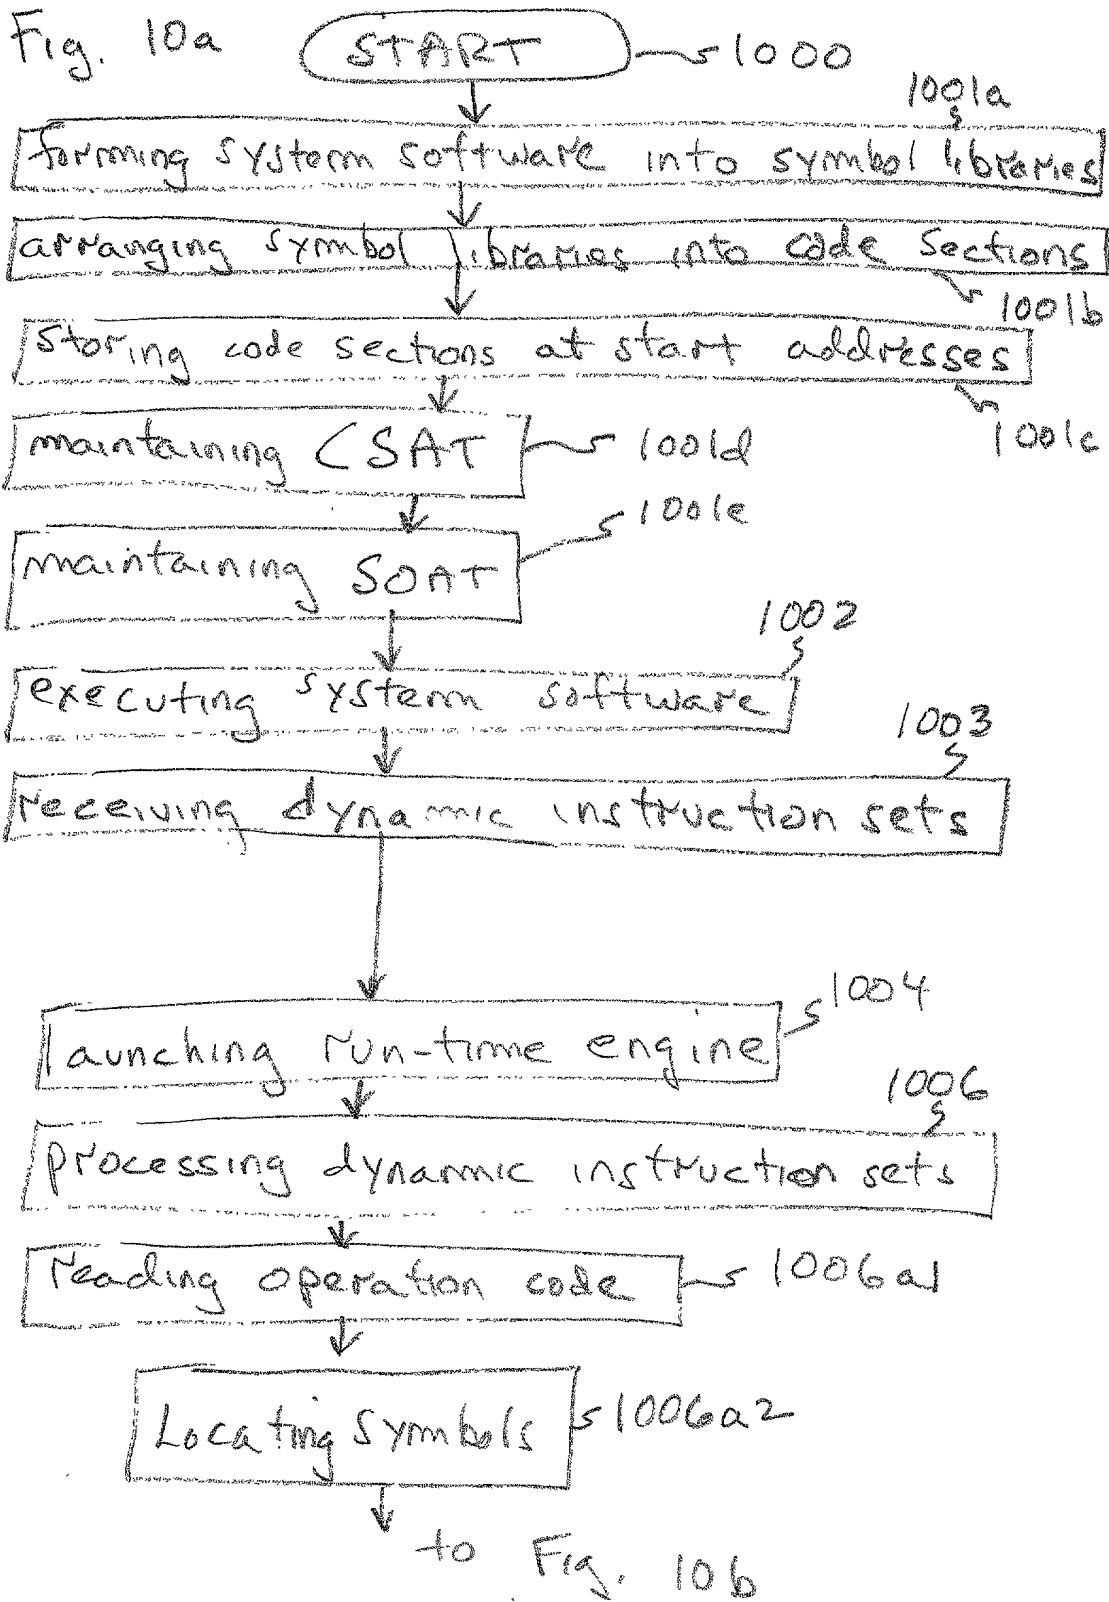 Fig. 10a START 1000
1001a
forming system software into symbol libraries
arranging symbol libraries into code sections
1001b
storing code sections at start addresses
1001c
maintaining CSAT 1001d
1001e
maintaining SOAT
1002
executing system software
1003
receiving dynamic instruction sets
1004
launching run-time engine
1006
processing dynamic instruction sets
reading operation code 1006a1
Locating symbols 1006a2
to Fig. 10b